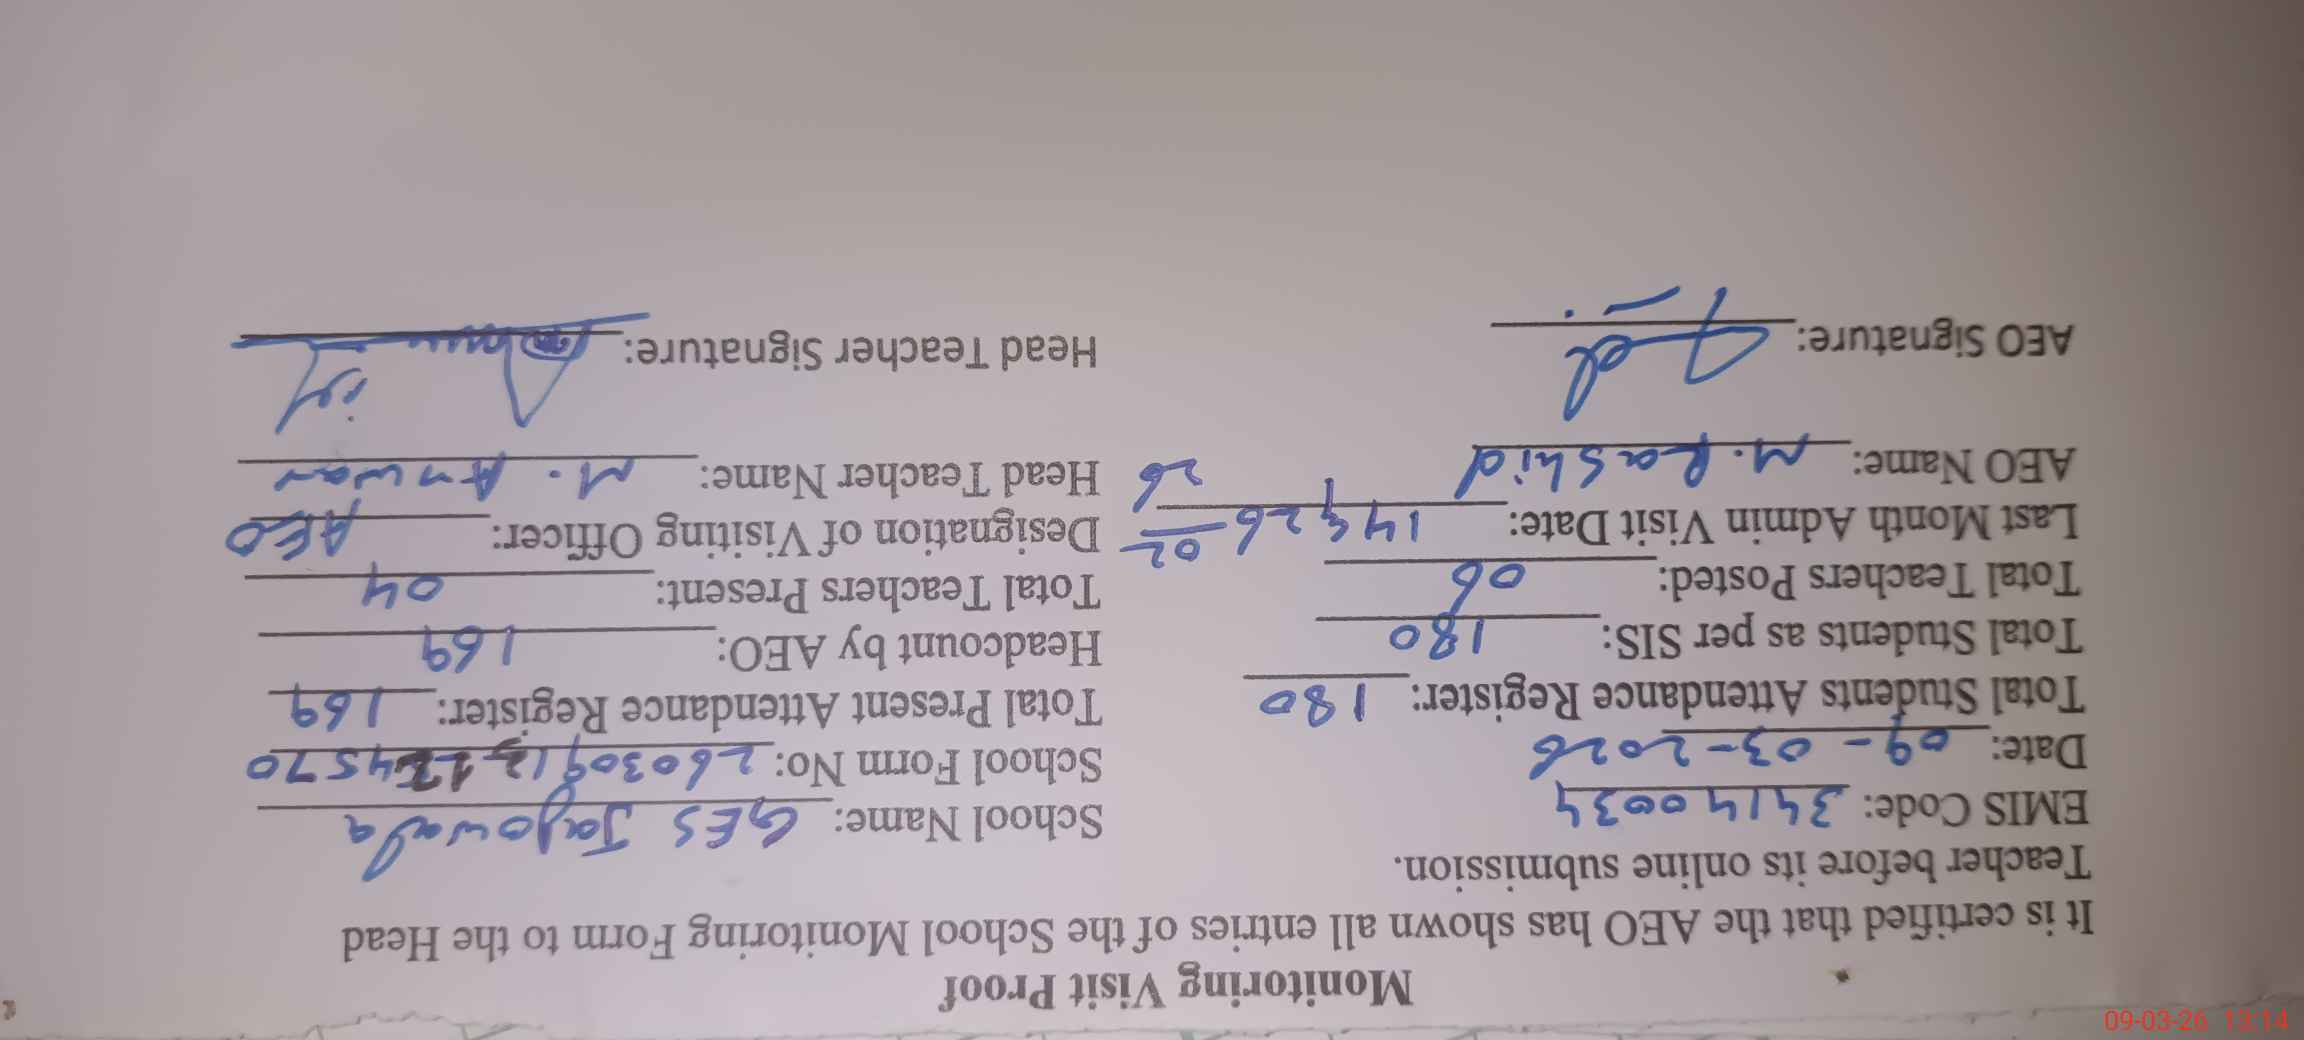 Monitoring Visit Proof
It is certified that the AEO has shown all entries of the School Monitoring Form to the Head
Teacher before its online submission.
EMIS Code: 34140034 School Name: GES Jajowala
Date: 09-03-2026 School Form No: 26030912
Total Students Attendance Register: 180 Total Present Attendance Register: 169
Total Students as per SIS: 180 Headcount by AEO: 169
Total Teachers Posted: 06 Total Teachers Present: 04
Last Month Admin Visit Date: 14 02 26 Designation of Visiting Officer: AEO
AEO Name: M. Rashid Head Teacher Name: M. Anwar
AEO Signature: Head Teacher Signature:
09-03-26 13:14